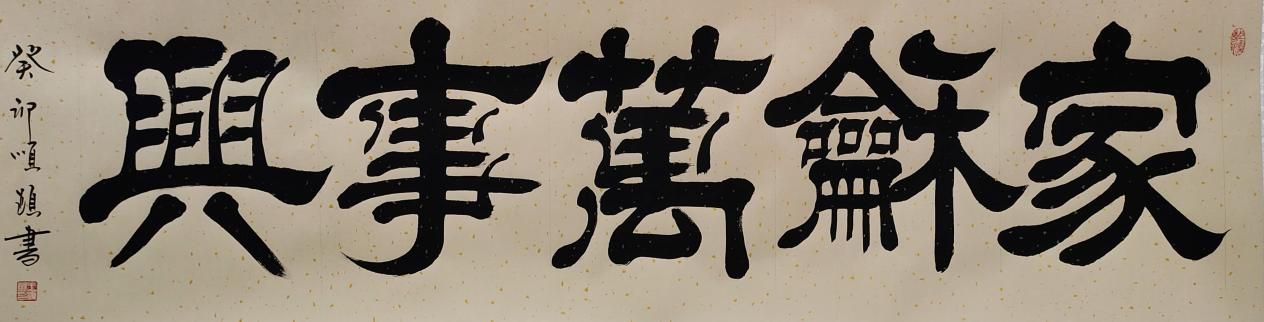 家龢萬事興
癸卯順穎書